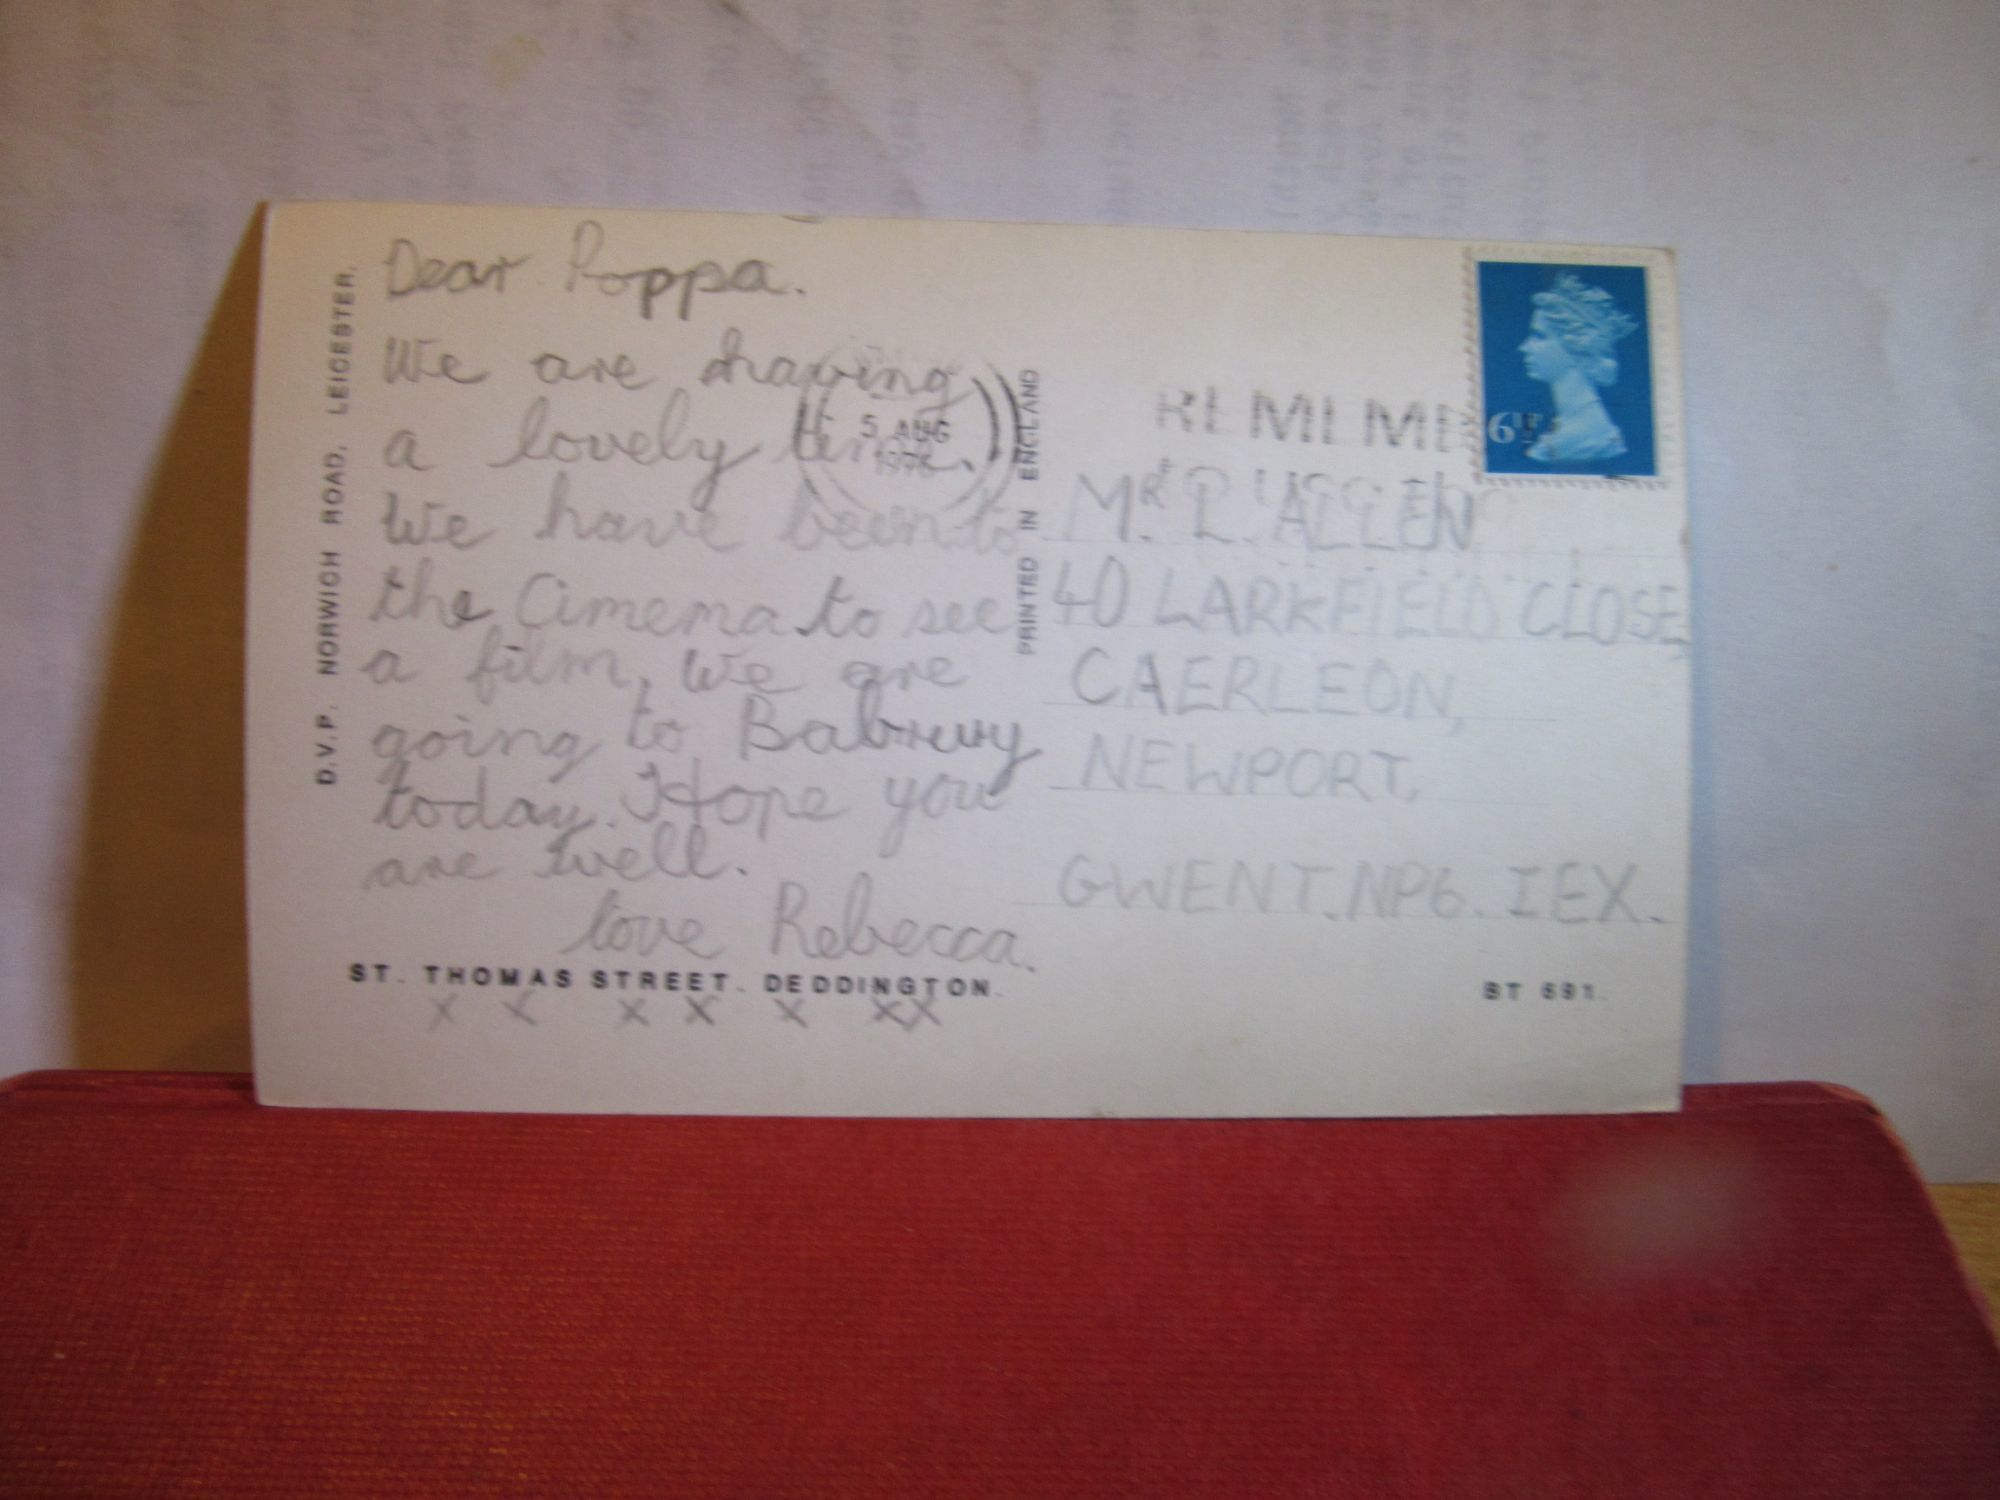 Dear Poppa.
We are having
a lovely time.
We have been to
the Cimema to see
a film, We are
going to Babruy
today. Hope you
are well.
love Rebecca.
x x x x x xx
ST. THOMAS STREET. DEDDINGTON.
D.V.P. NORWICH ROAD, LEICESTER.
PRINTED IN ENGLAND
5 AUG
1976
6½P
MR. L. ALLEN
40 LARKFIELD CLOSE,
CAERLEON,
NEWPORT,
GWENT. NP6. 1EX.
ST 691